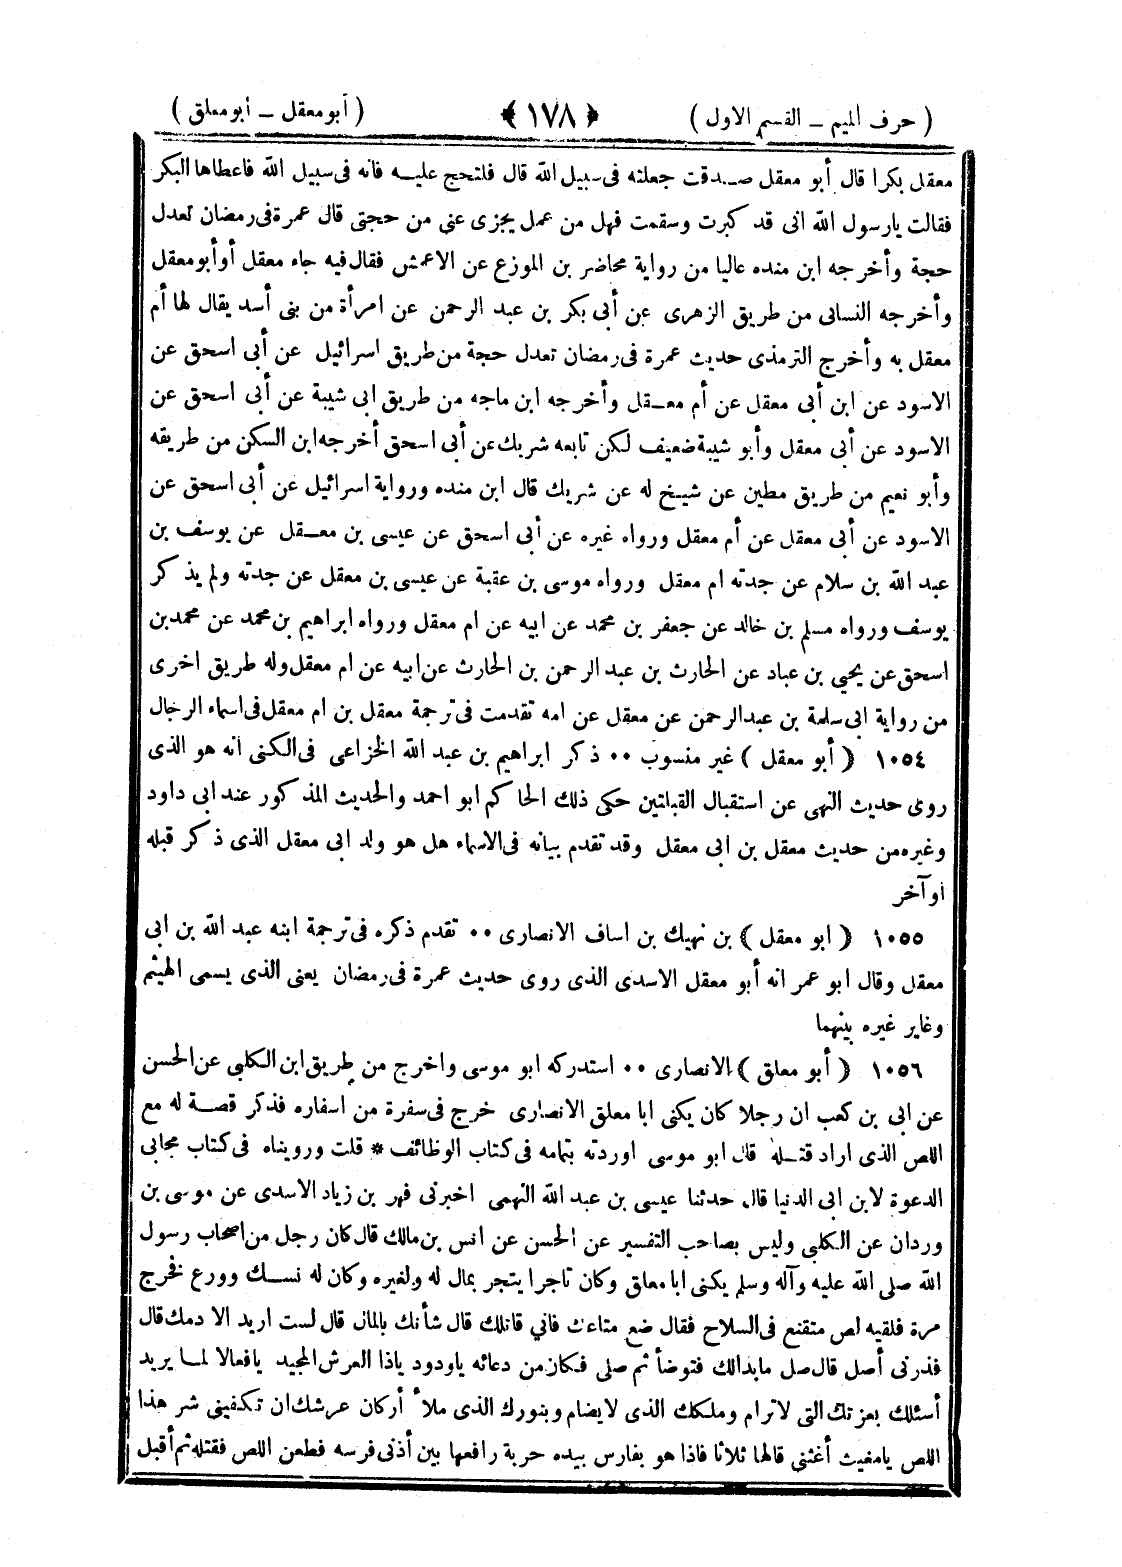 ( حرف الميم ــ القسم الاول ) ﴿ ١٧٨ ﴾ ( أبو معقل ــ أبو معلق )
معقل بكرا قال أبو معقل صدقت جعلته فى سبيل الله قال فلتحج عليه فانه فى سبيل الله فاعطاها البكر
فقالت يارسول الله انى قد كبرت وسقمت فهل من عمل يجزى عنى من حجتى قال عمرة فى رمضان تعدل
حجة وأخرجه ابن منده عاليا من رواية محاضر بن الموزع عن الاعمش فقال فيه جاء معقل أو أبو معقل
وأخرجه النسائى من طريق الزهرى عن أبى بكر بن عبد الرحمن عن امرأة من بنى أسد يقال لها أم
معقل به وأخرج الترمذى حديث عمرة فى رمضان تعدل حجة من طريق اسرائيل عن أبى اسحق عن
الاسود عن ابن أبى معقل عن أم معقل وأخرجه ابن ماجه من طريق ابى شيبة عن أبى اسحق عن
الاسود عن أبى معقل وأبو شيبة ضعيف لكن تابعه شريك عن أبى اسحق أخرجه ابن السكن من طريقه
وأبو نعيم من طريق مطين عن شيخ له عن شريك قال ابن منده ورواية اسرائيل عن أبى اسحق عن
الاسود عن أبى معقل عن أم معقل ورواه غيره عن أبى اسحق عن عيسى بن معقل عن يوسف بن
عبد الله بن سلام عن جدته ام معقل ورواه موسى بن عقبة عن عيسى بن معقل عن جدته ولم يذكر
يوسف ورواه مسلم بن خالد عن جعفر بن محمد عن ابيه عن ام معقل ورواه ابراهيم بن محمد عن محمد بن
اسحق عن يحيى بن عباد عن الحارث بن عبد الرحمن بن الحارث عن ابيه عن ام معقل وله طريق اخرى
من رواية ابى سلمة بن عبدالرحمن عن معقل عن امه تقدمت فى ترجمة معقل بن ام معقل فى اسماء الرجال
١٠٥٤ ( أبو معقل ) غير منسوب ٠٠ ذكر ابراهيم بن عبد الله الخزاعى فى الكنى انه هو الذى
روى حديث النهى عن استقبال القبلتين حكى ذلك الحاكم ابو احمد والحديث المذكور عند ابى داود
وغيره من حديث معقل بن ابى معقل وقد تقدم بيانه فى الاسماء هل هو ولد ابى معقل الذى ذكر قبله
او آخر
١٠٥٥ ( ابو معقل ) بن نهيك بن اساف الانصارى ٠٠ تقدم ذكره فى ترجمة ابنه عبد الله بن ابى
معقل وقال ابو عمر انه أبو معقل الاسدى الذى روى حديث عمرة فى رمضان يعنى الذى يسمى الهيثم
وغاير غيره بينهما
١٠٥٦ ( أبو معلق ) الانصارى ٠٠ استدركه ابو موسى واخرج من طريق ابن الكلبي عن الحسن
عن ابى بن كعب ان رجلا كان يكنى ابا معلق الانصارى خرج فى سفرة من اسفاره فذكر قصة له مع
اللص الذى اراد قتله قال ابو موسى اوردته بتمامه فى كتاب الوظائف * قلت ورويناه فى كتاب مجابى
الدعوة لابن ابى الدنيا قال حدثنا عيسى بن عبد الله النهمى اخبرنى فهر بن زياد الاسدى عن موسى بن
وردان عن الكلبي وليس بصاحب التفسير عن الحسن عن انس بن مالك قال كان رجل من اصحاب رسول
الله صلى الله عليه وآله وسلم يكنى ابا معلق وكان تاجرا يتجر بمال له ولغيره وكان له نسك وورع فخرج
مرة فلقيه لص متقنع فى السلاح فقال ضع متاعك فاني قاتلك قال شأنك بالمال قال لست اريد الا دمك قال
فذرنى أصل قال صل مابدالك فتوضأ ثم صلى فكان من دعائه ياودود ياذا العرش المجيد يافعالا لما يريد
أسئلك بعزتك التى لاترام وملكك الذى لايضام وبنورك الذى ملأ أركان عرشك ان تكفينى شر هذا
اللص يامغيث أغثنى قالها ثلاثا فاذا هو بفارس بيده حربة رافعها بين أذنى فرسه فطعن اللص فقتله ثم أقبل